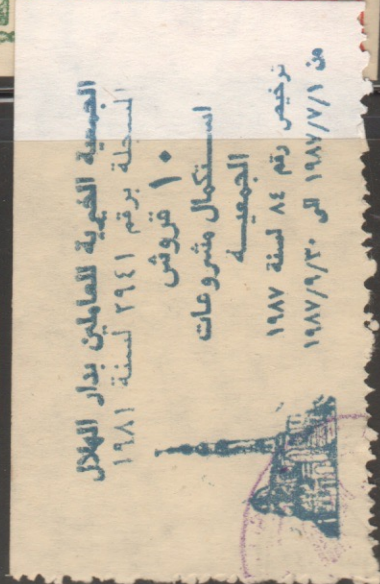 الجمعية الخيرية للعاملين بدار الهلال
المسجلة برقم ٢٩٤١ لسنة ١٩٨١
١٠ قروش
استكمال مشروعات
الجمعية
ترخيص رقم ٨٤ لسنة ١٩٨٧
من ١٩٨٧/٧/١ الى ١٩٨٧/٩/٣٠